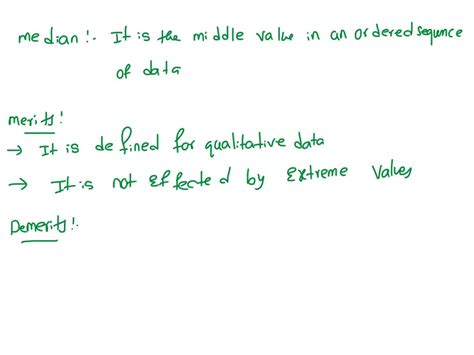 median:- It is the middle value in an ordered sequence
of data
merits:
→ It is defined for qualitative data
→ It is not effected by Extreme Values
Demerits:-